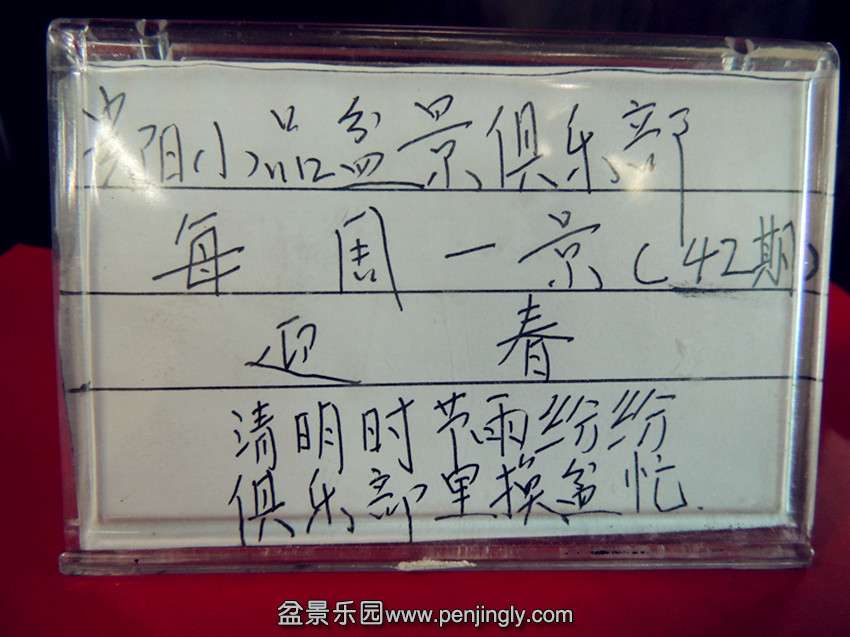 阳小品盆景俱乐部
每周一景(42期)
迎春
清明时节雨纷纷
俱乐部里换盆忙.
盆景乐园www.penjingly.com